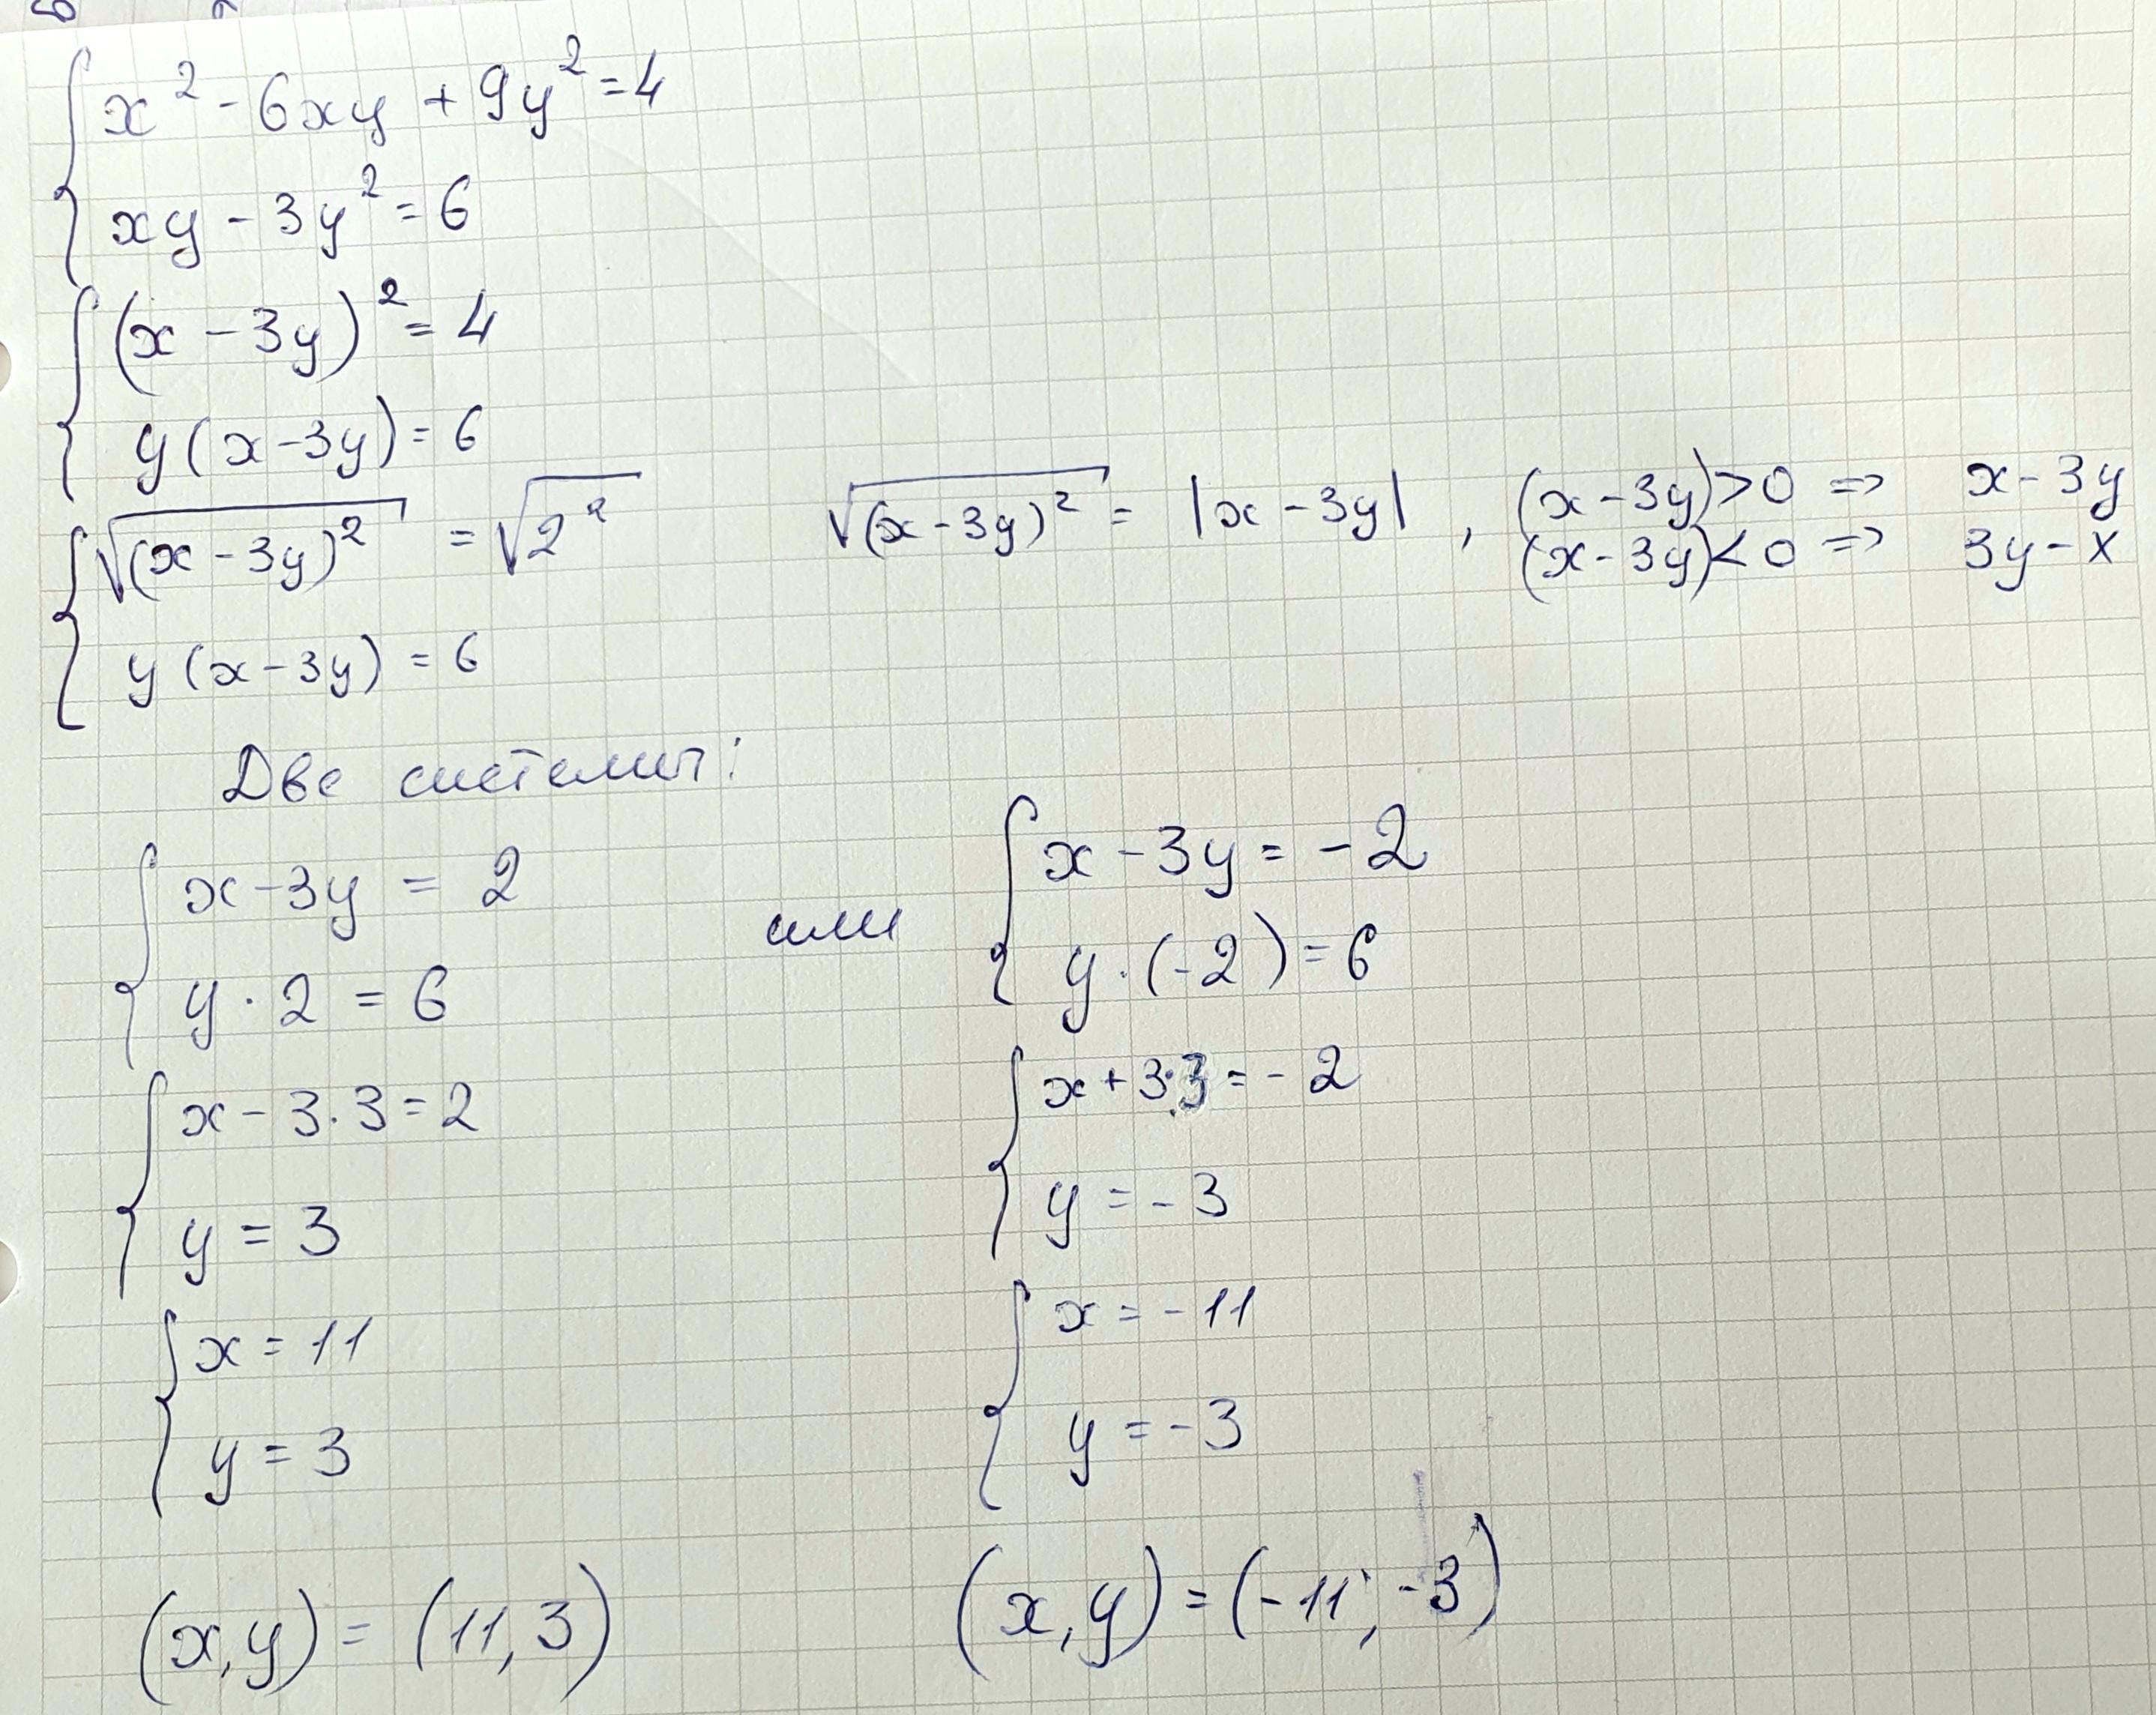 x² - 6xy + 9y² = 4
xy - 3y² = 6
(x - 3y)² = 4
y(x - 3y) = 6
√(x - 3y)² = √2² √(x - 3y)² = |x - 3y| , (x - 3y) > 0 => x - 3y
(x - 3y) < 0 => 3y - x
y(x - 3y) = 6
Две системы:
x - 3y = 2 или x - 3y = -2
y · 2 = 6 y · (-2) = 6
x - 3·3 = 2 x + 3·3 = -2
y = 3 y = -3
x = 11 x = -11
y = 3 y = -3
(x, y) = (11, 3) (x, y) = (-11; -3)